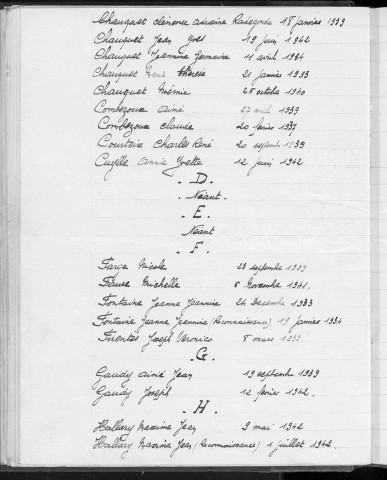 Chauquet Clémence Adrienne Radegonde 18 janvier 1939
Chauquet Jean Yves 19 juin 1942
Chauquet Jeannine Germaine 11 avril 1934
Chauquet René Thérèse 21 janvier 1933
Chauquet Noémie 25 octobre 1940
Combezoux Aimé 27 avril 1939
Combezoux Claude 20 février 1937
Courteix Charles René 20 septembre 1939
Cuzelle Annie Yvette 12 juin 1942
. D .
. Néant .
. E .
Néant
. F .
Farge Nicole 23 septembre 1939
Faure Michelle 5 Novembre 1941.
Fontaine Jeanne Jeannine 24 Decembre 1933
Fontaine Jeanne Jeannine (Reconnaissance) 19 janvier 1934
Fuentes Joseph Veronico 8 mars 1939.
. G .
Gaudy Aimé Jean 19 septembre 1939
Gaudy Joseph 12 février 1942.
. H .
Hallary Maxime Jean 9 mai 1942
Hallary Maxime Jean (Reconnaissance) 1 juillet 1942.